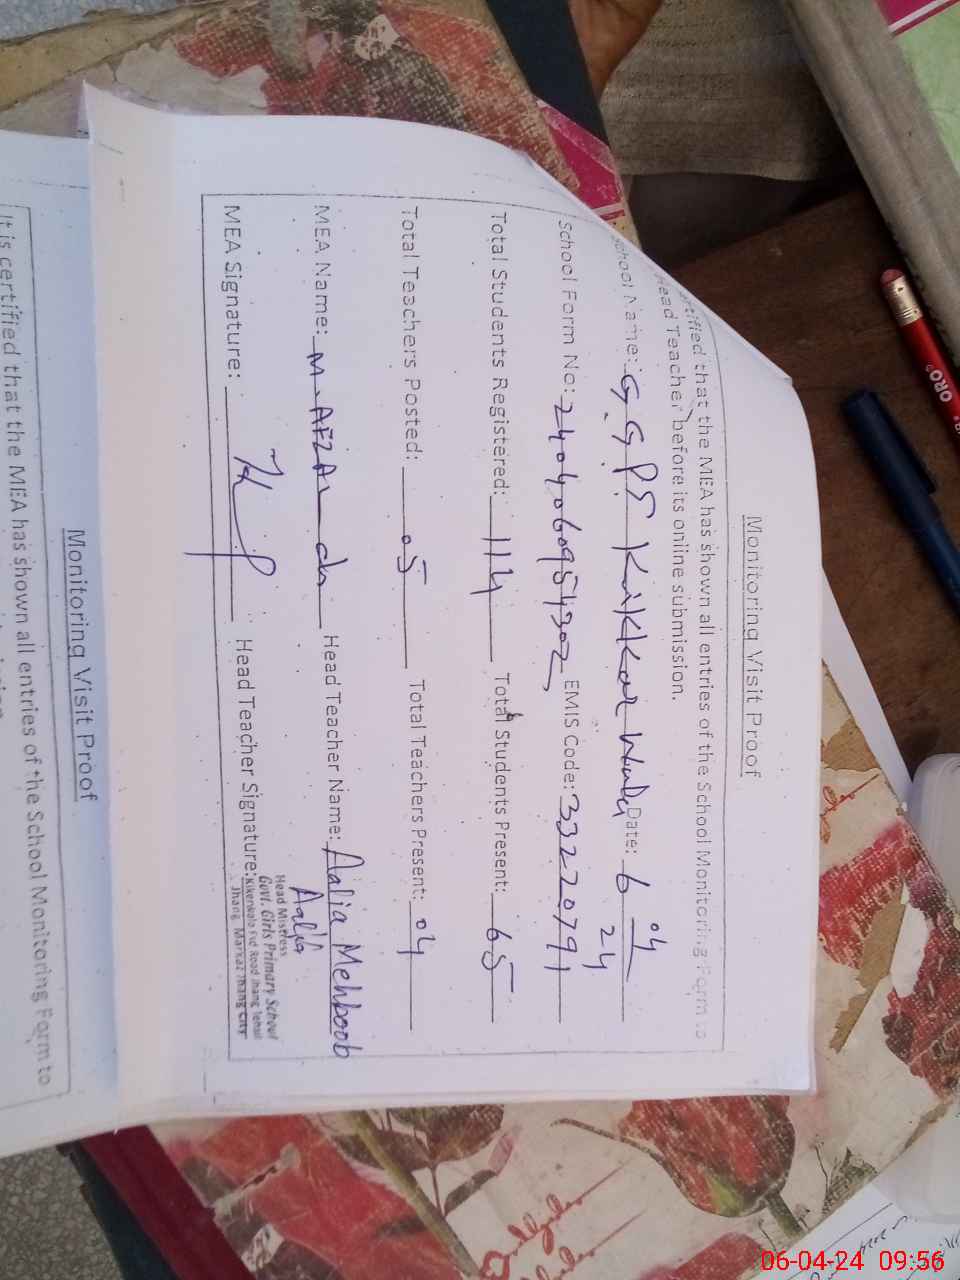 Monitoring Visit Proof
rtified that the MEA has shown all entries of the School Monitoring Form to
Head Teacher before its online submission.
School Name: G.GPS Kaikkar Wala Date: 6/04/24
School Form No: 2404060954302, EMIS Code: 33222079 1
Total Students Registered: 114 Total Students Present: 65
Total Teachers Posted: 05 Total Teachers Present: 04
MEA Name: M. AFZAL Head Teacher Name: Aalia Mehboob
Aalia
MEA Signature: Head Teacher Signature:
Head Mistress
Govt. Girls Primary School
Road Jhang Tehsil
Jhang, Markaz Jhang City
Monitoring Visit Proof
It is certified that the MEA has shown all entries of the School Monitoring Form to
ORO
06-04-24 09:56